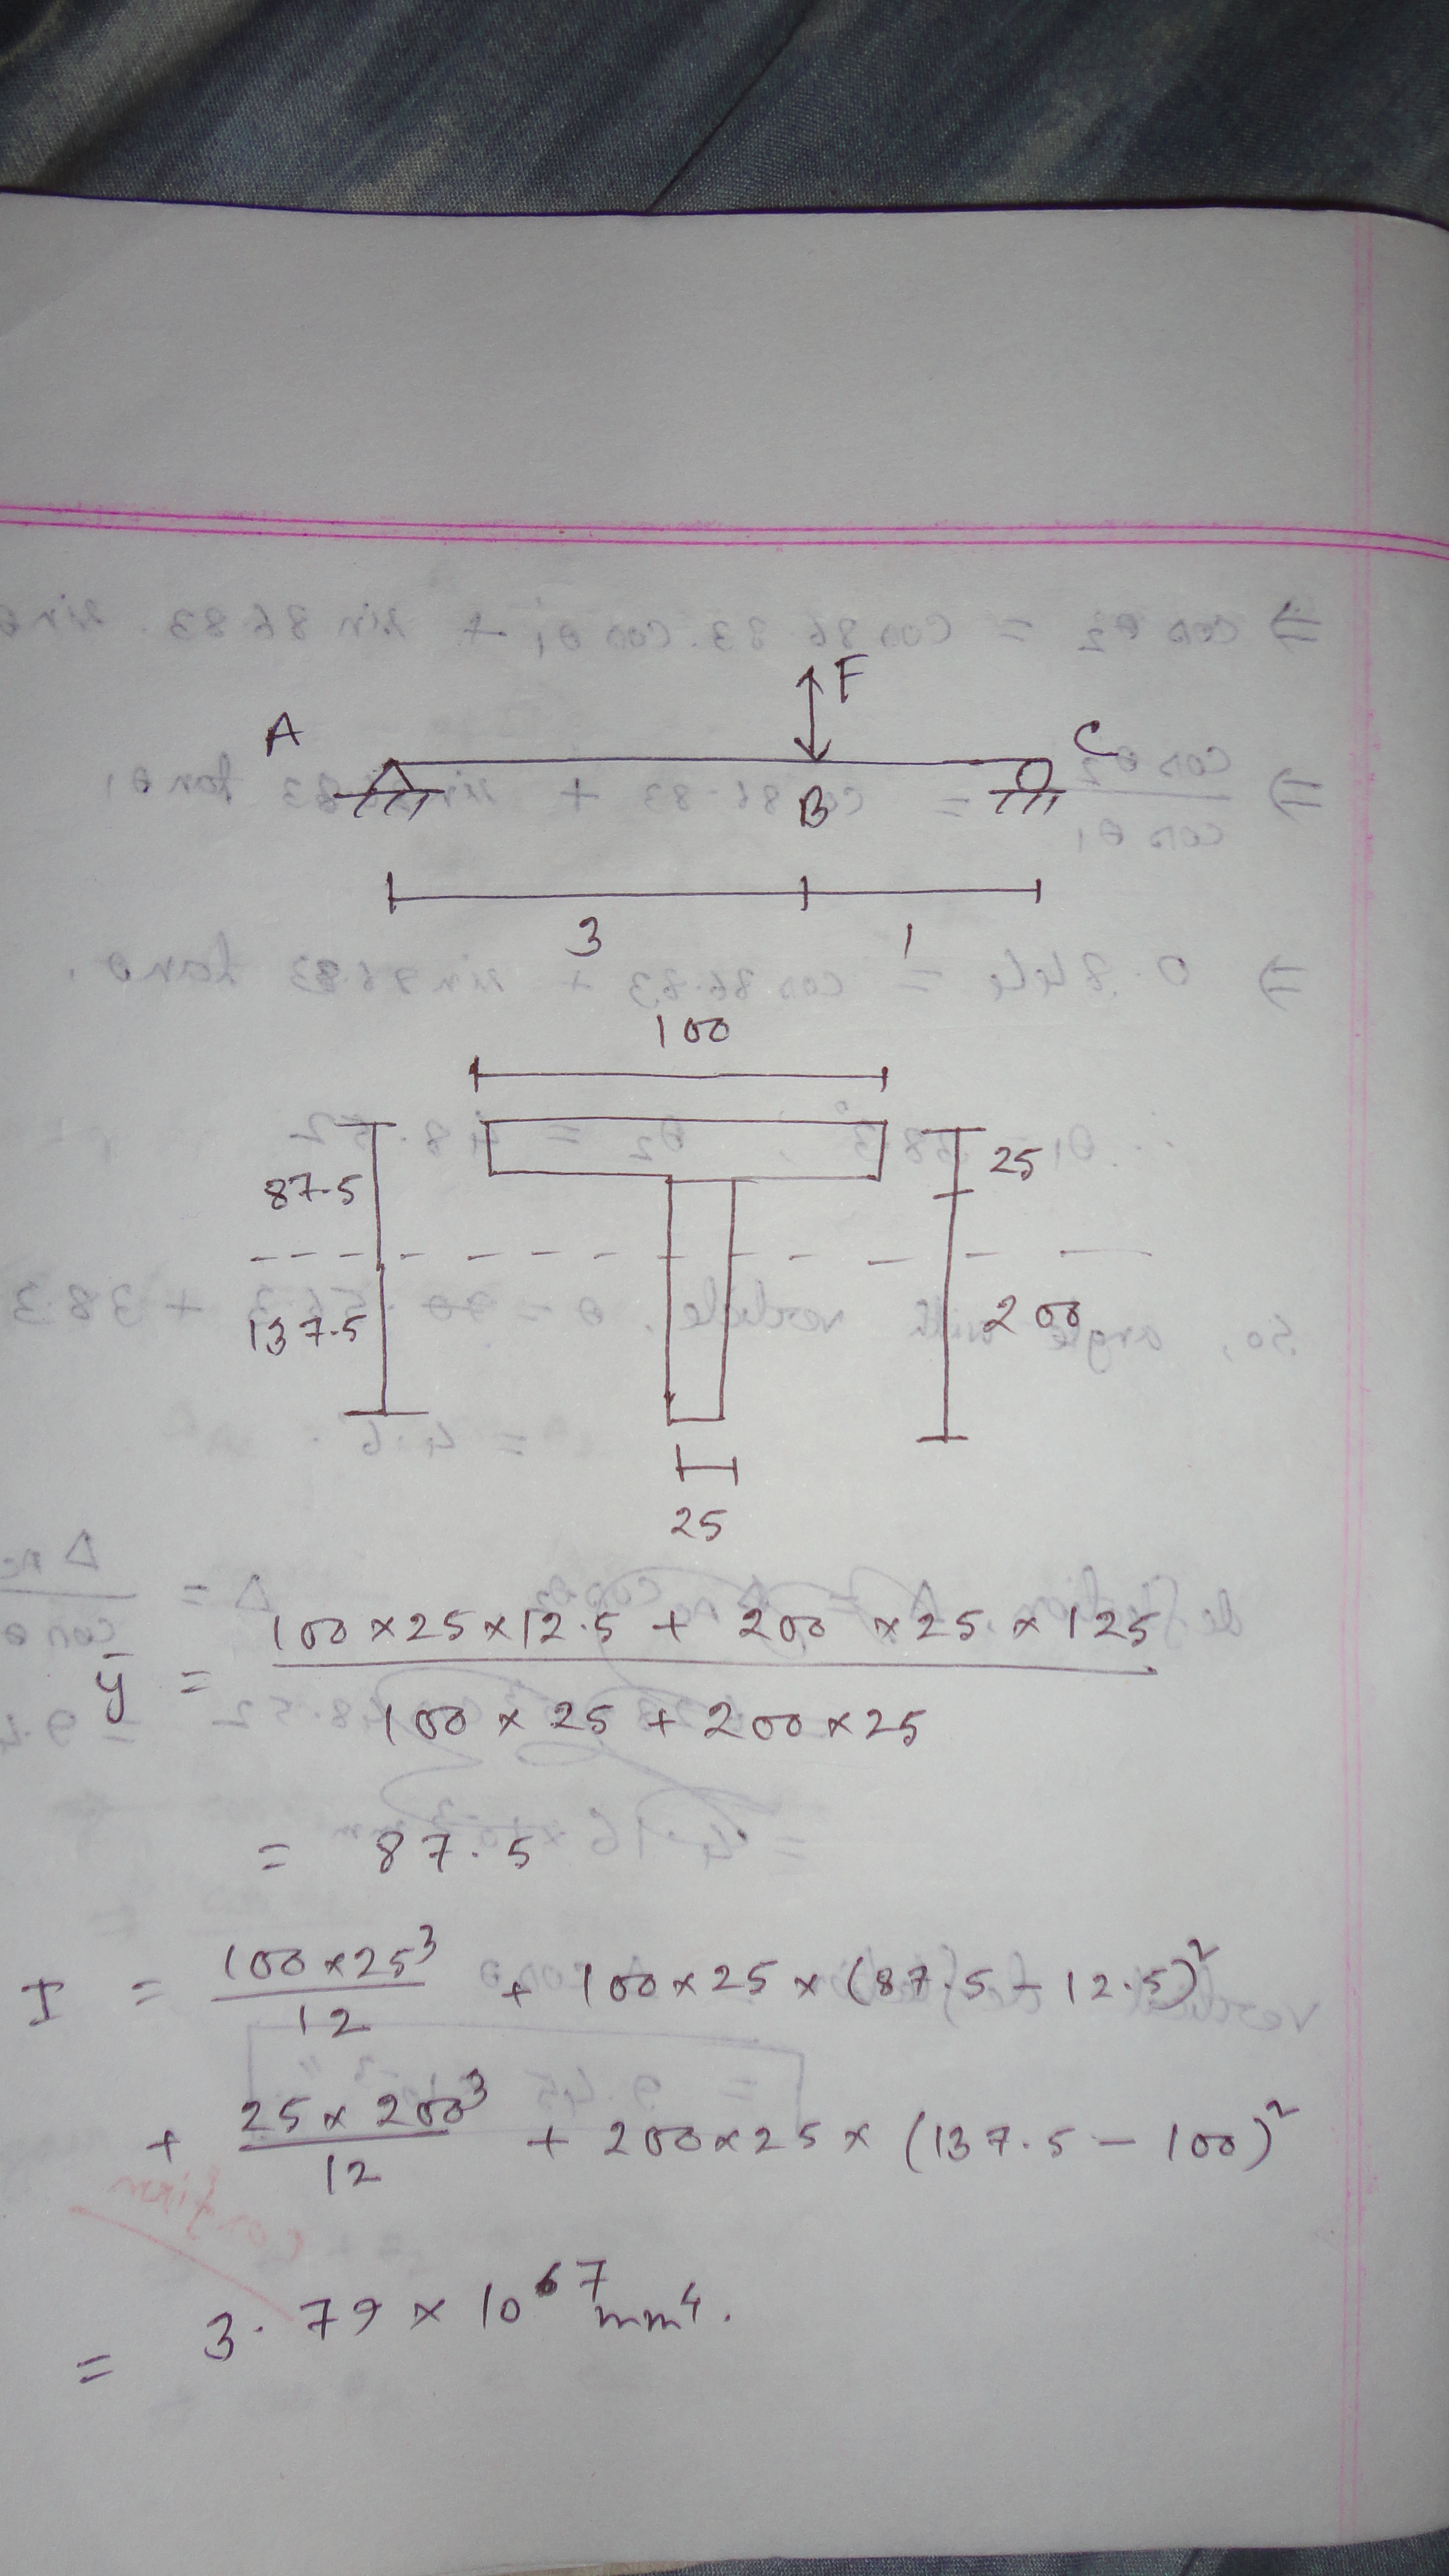 F
A
C
B
3
1
100
87.5
25
137.5
200
25
ȳ = 100 × 25 × 12.5 + 200 × 25 × 125
100 × 25 + 200 × 25
= 87.5
I = 100 × 25³ / 12 + 100 × 25 × (87.5 - 12.5)²
+ 25 × 200³ / 12 + 200 × 25 × (137.5 - 100)²
= 3.79 × 10⁷ mm⁴.